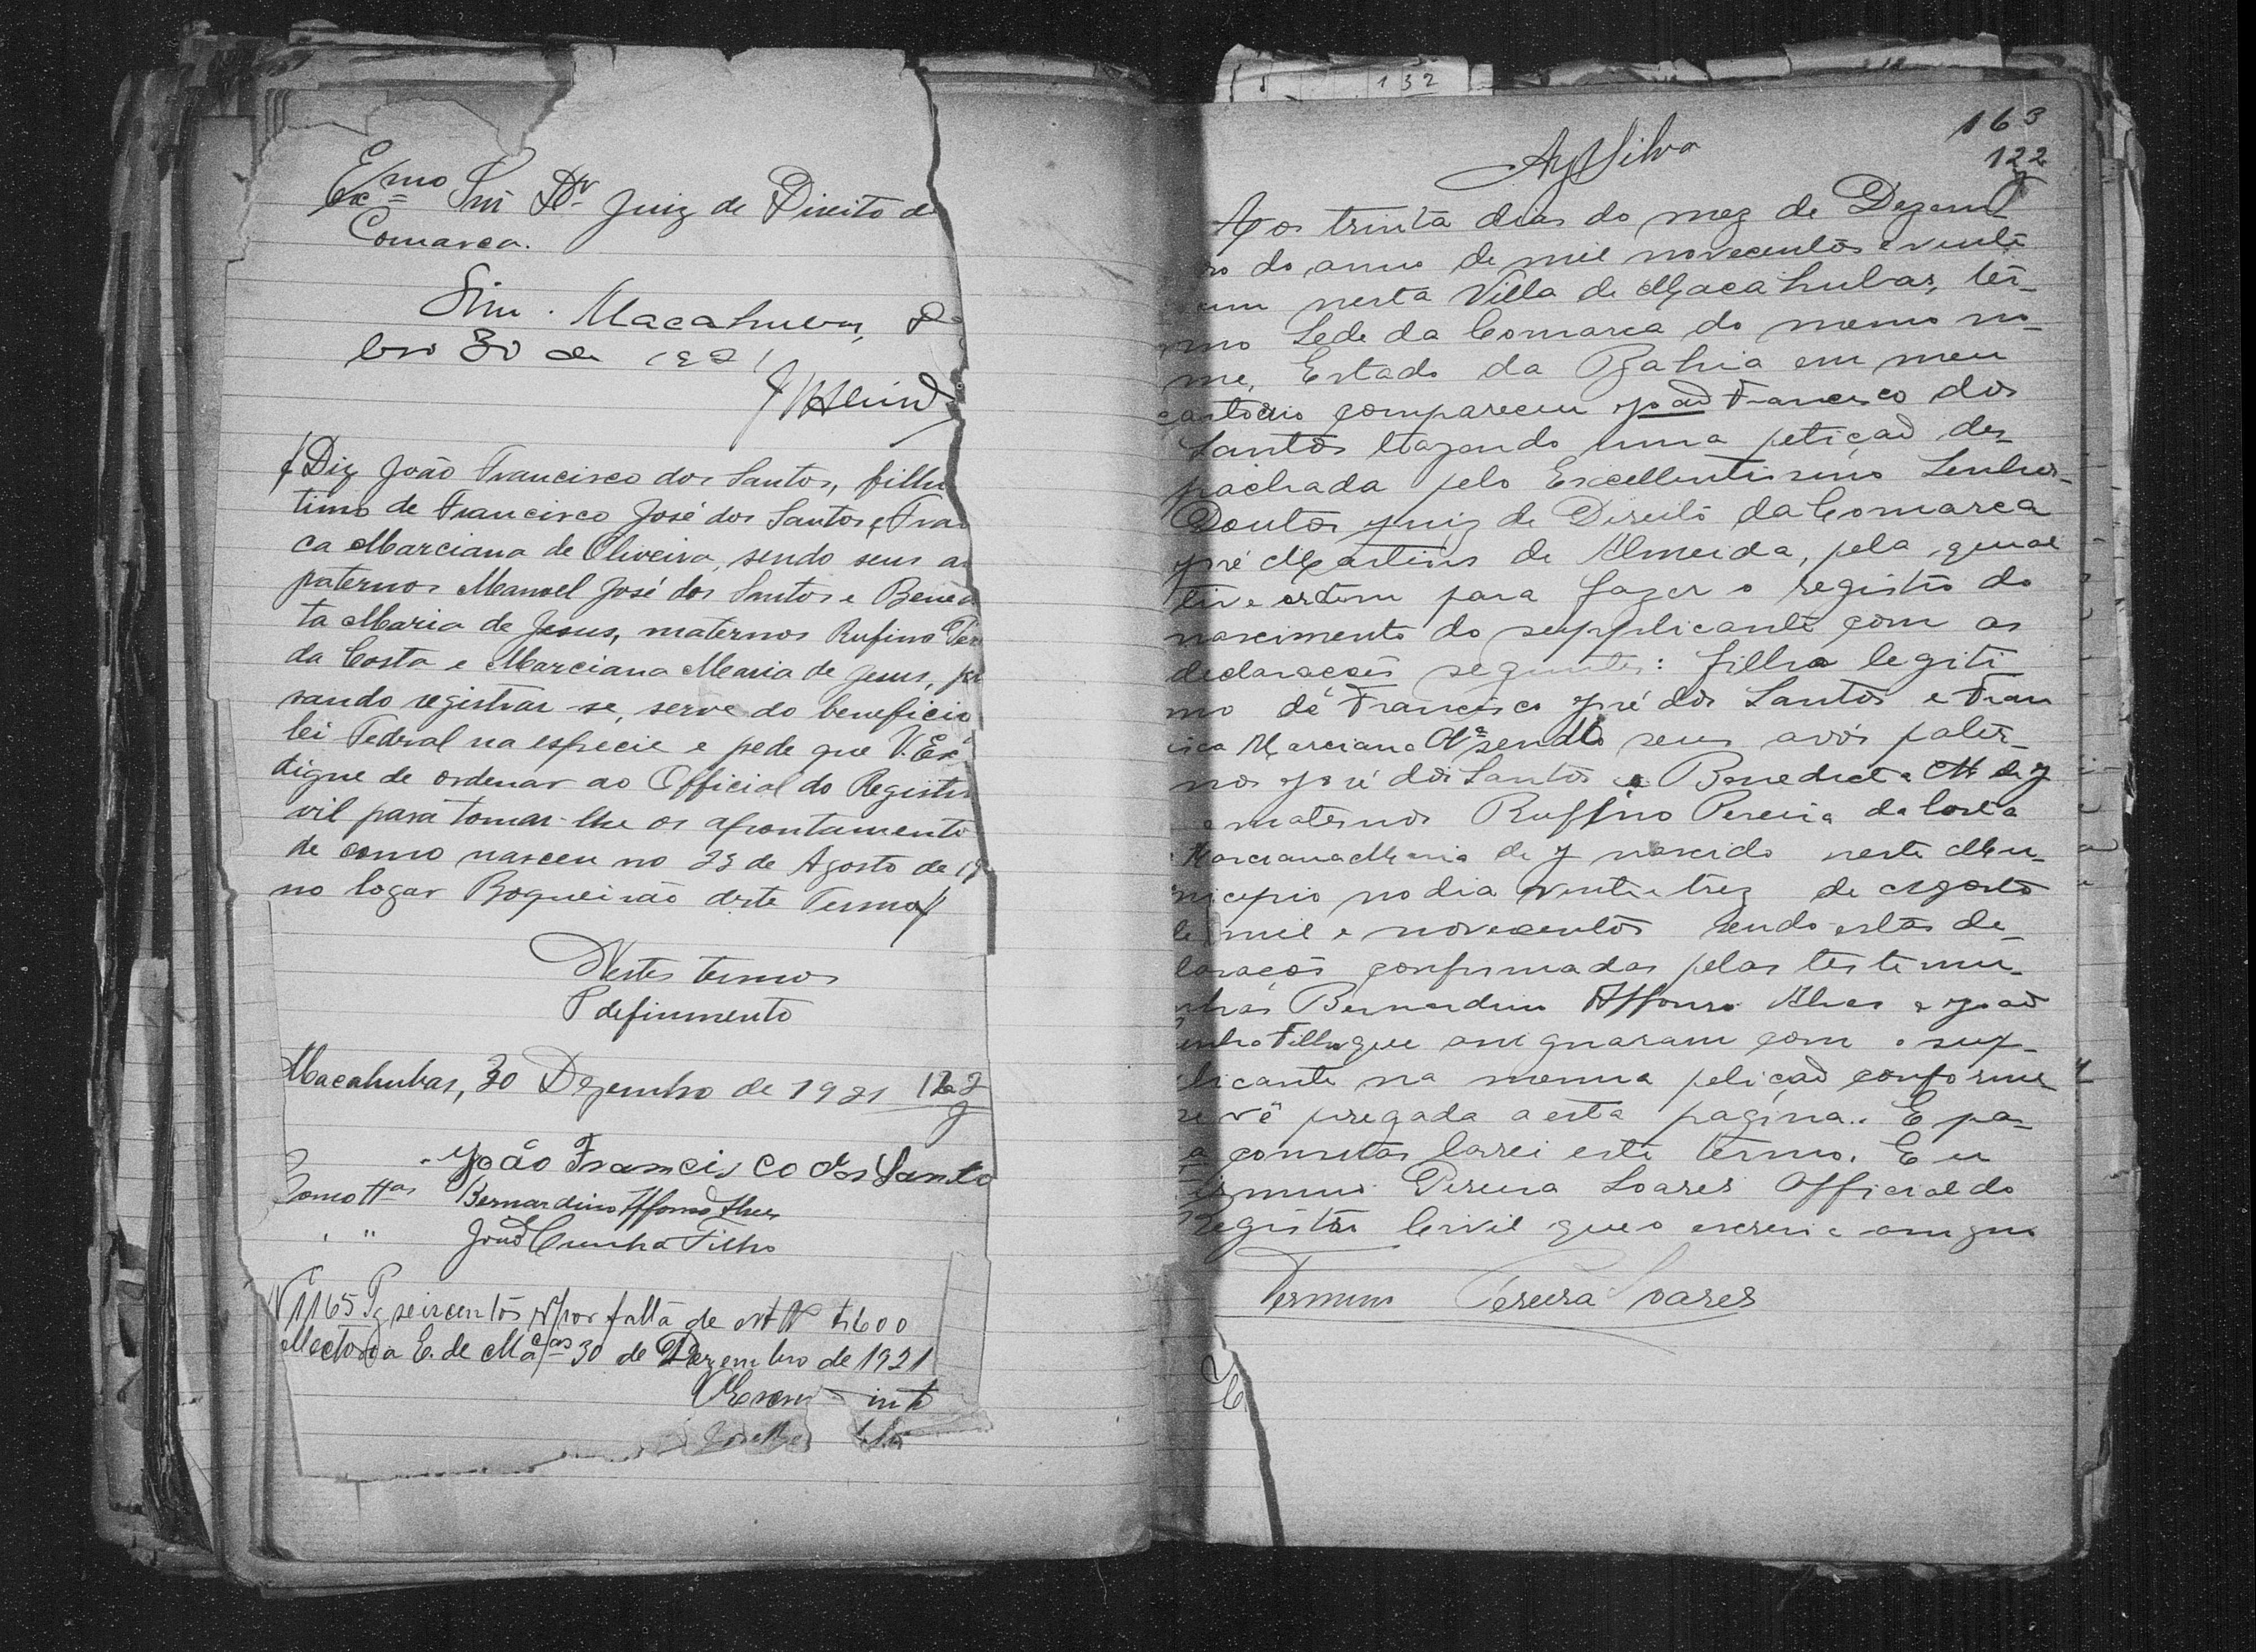 Exmo Snr Dr Juiz de Direito de
Comarca.
Sim. Macahubas, De
bro 30 de 1921
Diz João Francisco dos Santos, filho
timo de Francisco José dos Santos, e Fran
ca Marciana de Oliveira, sendo seus a
paternos Manoel José dos Santos e Bened
ta Maria de Jesus, maternos Rufino Per
da Costa e Marciana Maria de Jesus, pr
sando registrar-se, serve do beneficio
lei Federal na especie e pede que V. Exa
digne de ordenar ao Official do Registro
vil para tomar-lhe os apontamento
de como nasceu no 23 de Agosto de 19
no logar Boqueirão deste Termo
Nestes termos
P defirimento
Macahubas, 30 Dezembro de 1921 122
João Francisco dos Santo
Como ttas Bernardino Affonso Alves
" João Cunha Filho
N 1165 Pg seiscentos rs por falta de $600
Mectoria E. de Macas 30 de Dezembro de 1921
int
132
163
122
AySilva
Aos trinta dias do mez de Dezem
bro do anno de mil novecentos e vinte
um nesta Villa de Macahubas, ter-
mo Sede da Comarca do mesmo no-
me, Estado da Bahia em meu
cartorio compareceu João Francisco dos
Santos trazendo uma petição des-
pachada pelo Excellentissimo Senhor
Doutor Juiz de Direito da Comarca
José Martins de Almeida, pela qual
tive ordem para fazer o registro do
nascimento do supplicante com as
declarações seguintes: filho legiti
mo de Francisco José dos Santos e Fran
cisca Marciana Olva sendo seus avós pater-
nos José dos Santos e Benedicta M de J
e maternos Ruffino Pereira da Costa
Marciana Maria de J nascido neste Mu-
nicipio no dia vinte e trez de Agosto
de mil e novecentos sendo estas de-
larações confirmadas pelas testemu-
nhas Bernardino Affonso Alves e João
unha Filho que assignaram com o sup-
licante na mesma petição conforme
se vê pregada a esta pagina. E pa-
a constar lavrei este termo. Eu
Pereira Soares Official do
Registro Civil que o escrevi e assigno
Pereira Soares